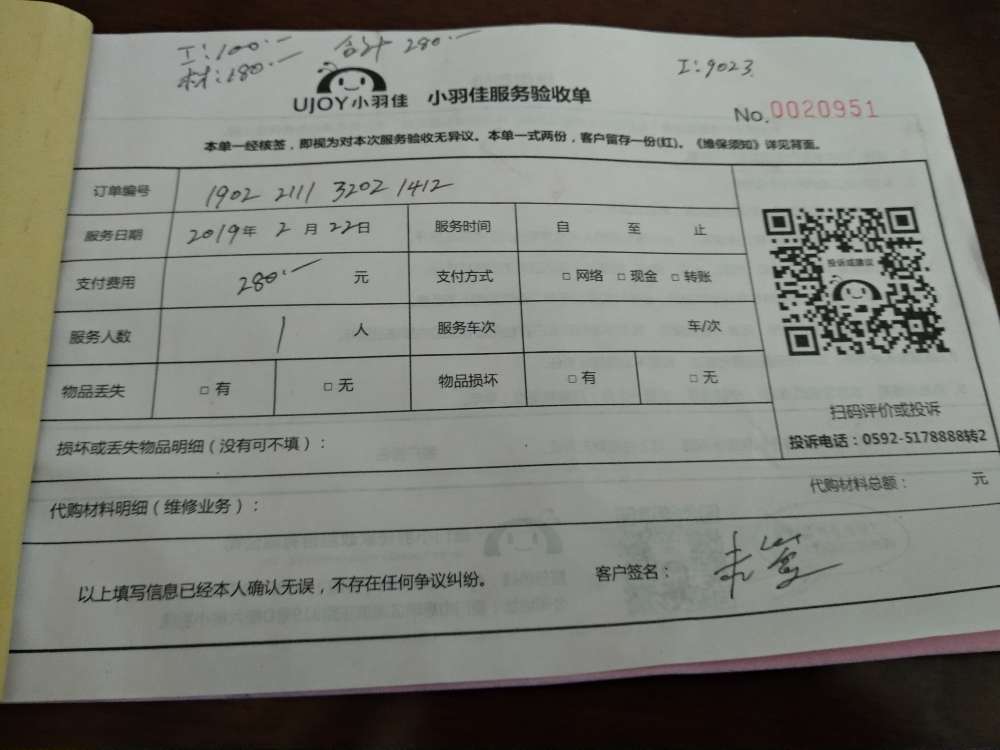 工:100.— 合计 280.—
材:180.—
工:9023
UJOY小羽佳 小羽佳服务验收单
No.0020951
本单一经核签，即视为对本次服务验收无异议。本单一式两份，客户留存一份(红)。《维保须知》详见背面。
订单编号 1902 2111 3202 1412
服务日期 2019年 2 月 22日 服务时间 自 至 止
投诉或建议
支付费用 280.— 元 支付方式 □ 网络 □ 现金 □ 转账
服务人数 1 人 服务车次 车/次
物品丢失 □ 有 □ 无 物品损坏 □ 有 □ 无
扫码评价或投诉
投诉电话：0592-5178888转2
损坏或丢失物品明细（没有可不填）：
代购材料明细（维修业务）： 代购材料总额： 元
以上填写信息已经本人确认无误，不存在任何争议纠纷。 客户签名：